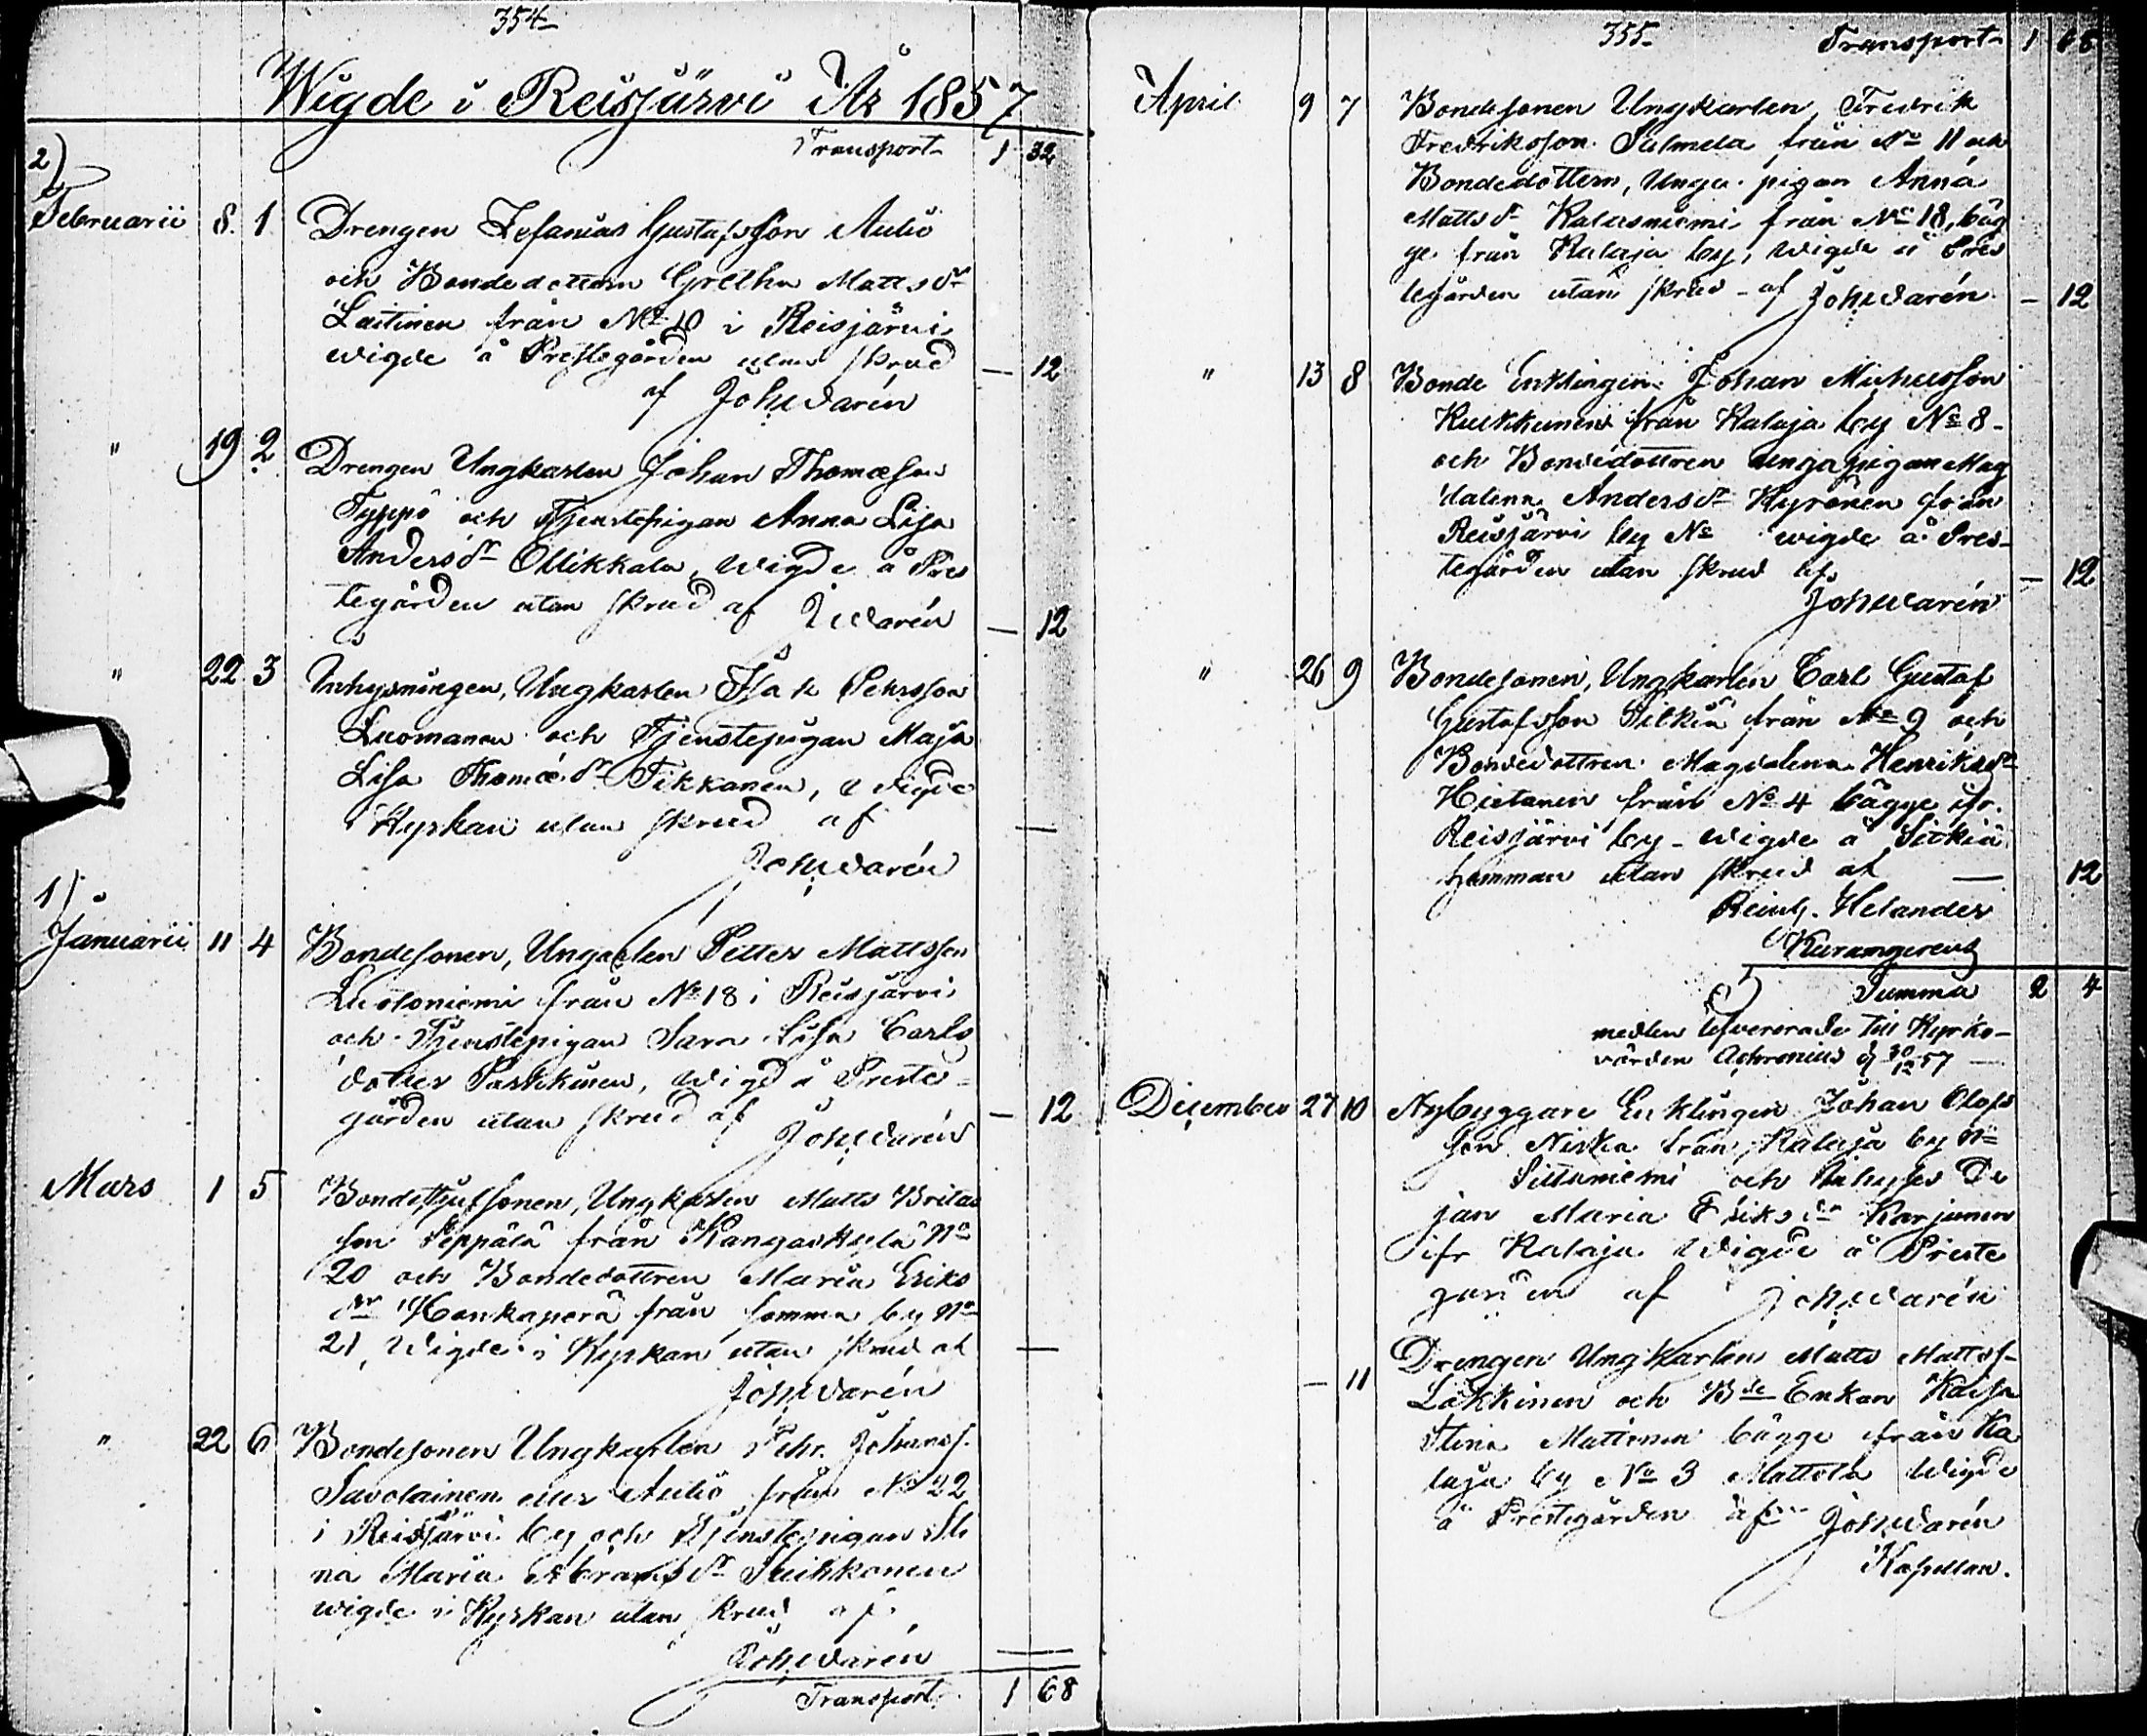 354
Wigde i Reisjärvi År 1857
Transport 1 32
2)
Februarii 8. 1 Drengen Zefanias Gustafsson Aulio
och Bondedottern Gretha Matts dr
Laitinen från No 10 i Reisjärvi
wigde å Prestegården utan skrud — 12
af Joh Warén
" 19 2 Drengen Ungkarlen Johan Thomæson
Typpö och Tjenstepigan Anna Lisa
Anders dr Ollikkala, wigde å Pres
tegården utan skrud af J Warén — 12
" 22 3 Inhysningen, Ungkarlen Isak Pehrsson
Luomanen och Tjenstepigan Maja
Lisa Thomæ dr Tikkanen, wigde
i Kyrkan utan skrud af —
Joh Warén
1)
Januarii 11 4 Bondesonen, Ungkarlen Petter Mattsson
Lustoniemi från No 18 i Reisjärvi
och Tjenstepigan Sara Lisa Carls
dotter Paskkinen, wigd å Preste-
gården utan skrud af Joh Warén — 12
Mars 1 5 Bondesonen, Ungkarlen Matts Britas
son Seppälä från Kangaskylä No
20 och Bondedottren Maria Eriks
dr Honkaperä från samma by No
21, Wigde i Kyrkan utan skrud af —
Joh Warén
" 22 6 Bondesonen Ungkarlen Pehr Johanss.
Savolainen eller Aulio från No 22
i Reisjärvi by och Tjenstepigan Sti
na Maria Abrams dr Puikkonen
wigde i Kyrkan utan skrud af
Joh Warén —
Transport 1 68
355 Transport 1 68
April 9 7 Bondesonen Ungkarlen Fredrik
Fredriksson Salmela från No 11 och
Bondedottern, Unga pigan Anna
Matts dr Kalasniemi från No 18, båg
ge från Kalaja by, wigde å Pres
tegården utan skrud af Joh Warén — 12
" 13 8 Bonde Enklingen Johan Michelsson
Kukkunen från Kalaja by No 8
och Bondedottren unga pigan Mag
dalena Anders dr Kyrönen från
Reisjärvi by No wigde å Pres-
tegården utan skrud af — 12
Joh Warén
" 26 9 Bondesonen, Ungkarlen Carl Gustaf
Gustafsson Sitkiä från No 9 och
Bondedottren Magdalena Henriks dr
Hietanen från No 4 bägge ifr.
Reisjärvi by wigde å Sitkiä
hemman utan skrud af — 12
Reinh. Helander
Summa 2 4
medlen levererade till Kyrko-
värden Achrenius d 30/12 57
December 27 10 Nybyggare Enklingen Johan Olofs
son Niska från Kalaja by No
Sittaniemi och Inhyses De
jan Maria Eriks dr Karjunen
ifr Kalaja Wigde å Preste
gården af Joh Warén
— 11 Drengen Ungkarlen Matts Mattss
Lokkinen och Bde Enkan Kaisa
Stina Mattinen bägge från Ka
laja by No 3 Mattola Wigde
å Prestegården af Joh Warén
Kapellan.